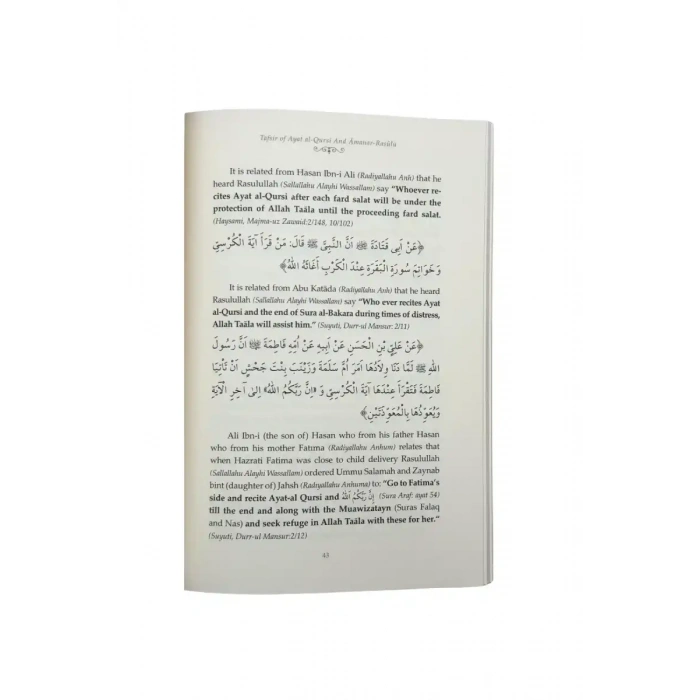 Tafsir of Ayat al-Qursi And Âmaner-Rasûlü
It is related from Hasan Ibn-i Ali (Radiyallahu Anh) that he
heard Rasulullah (Sallallahu Alayhi Wassallam) say “Whoever re-
cites Ayat al-Qursi after each fard salat will be under the
protection of Allah Taâla until the proceeding fard salat.
(Haysami, Majma-uz Zawaid:2/148, 10/102)
﴿عَنْ اَبِى قَتَادَةَ ﷺ اَنَّ النَّبِىَّ ﷺ قَالَ: مَنْ قَرَاَ اٰيَةَ الْكُرْسِىِّ
وَخَوَاتِمَ سُورَةِ الْبَقَرَةِ عِنْدَ الْكَرْبِ اَغَاثَهُ اللّٰهُ﴾
It is related from Abu Katâda (Radiyallahu Anh) that he heard
Rasulullah (Sallallahu Alayhi Wassallam) say “Who ever recites Ayat
al-Qursi and the end of Sura al-Bakara during times of distress,
Allah Taâla will assist him.” (Suyuti, Durr-ul Mansur: 2/11)
﴿عَنْ عَلِىِّ بْنِ الْحَسَنِ عَنْ اَبِيهِ عَنْ اُمِّهِ فَاطِمَةَ ﷺ اَنَّ رَسُولَ
اللّٰهِ ﷺ لَمَّا دَنَا وِلَادُهَا اَمَرَ اُمَّ سَلَمَةَ وَزَيْنَبَ بِنْتَ جَحْشٍ اَنْ تَأْتِيَا
فَاطِمَةَ فَتَقْرَاَ عِنْدَهَا اٰيَةَ الْكُرْسِىِّ وَ «اِنَّ رَبَّكُمُ اللّٰهُ» اِلىٰ اٰخِرِ الْاٰيَةِ
وَيُعَوِّذُهَا بِالْمُعَوِّذَتَيْنِ﴾
Ali Ibn-i (the son of) Hasan who from his father Hasan
who from his mother Fatıma (Radiyallahu Anhum) relates that
when Hazrati Fatima was close to child delivery Rasulullah
(Sallallahu Alayhi Wassallam) ordered Ummu Salamah and Zaynab
bint (daughter of) Jahsh (Radiyallahu Anhuma) to; “Go to Fatima’s
side and recite Ayat-al Qursi and اِنَّ رَبَّكُمُ اللّٰهُ (Sura Araf: ayat 54)
till the end and along with the Muawizatayn (Suras Falaq
and Nas) and seek refuge in Allah Taâla with these for her.”
(Suyuti, Durr-ul Mansur:2/12)
43